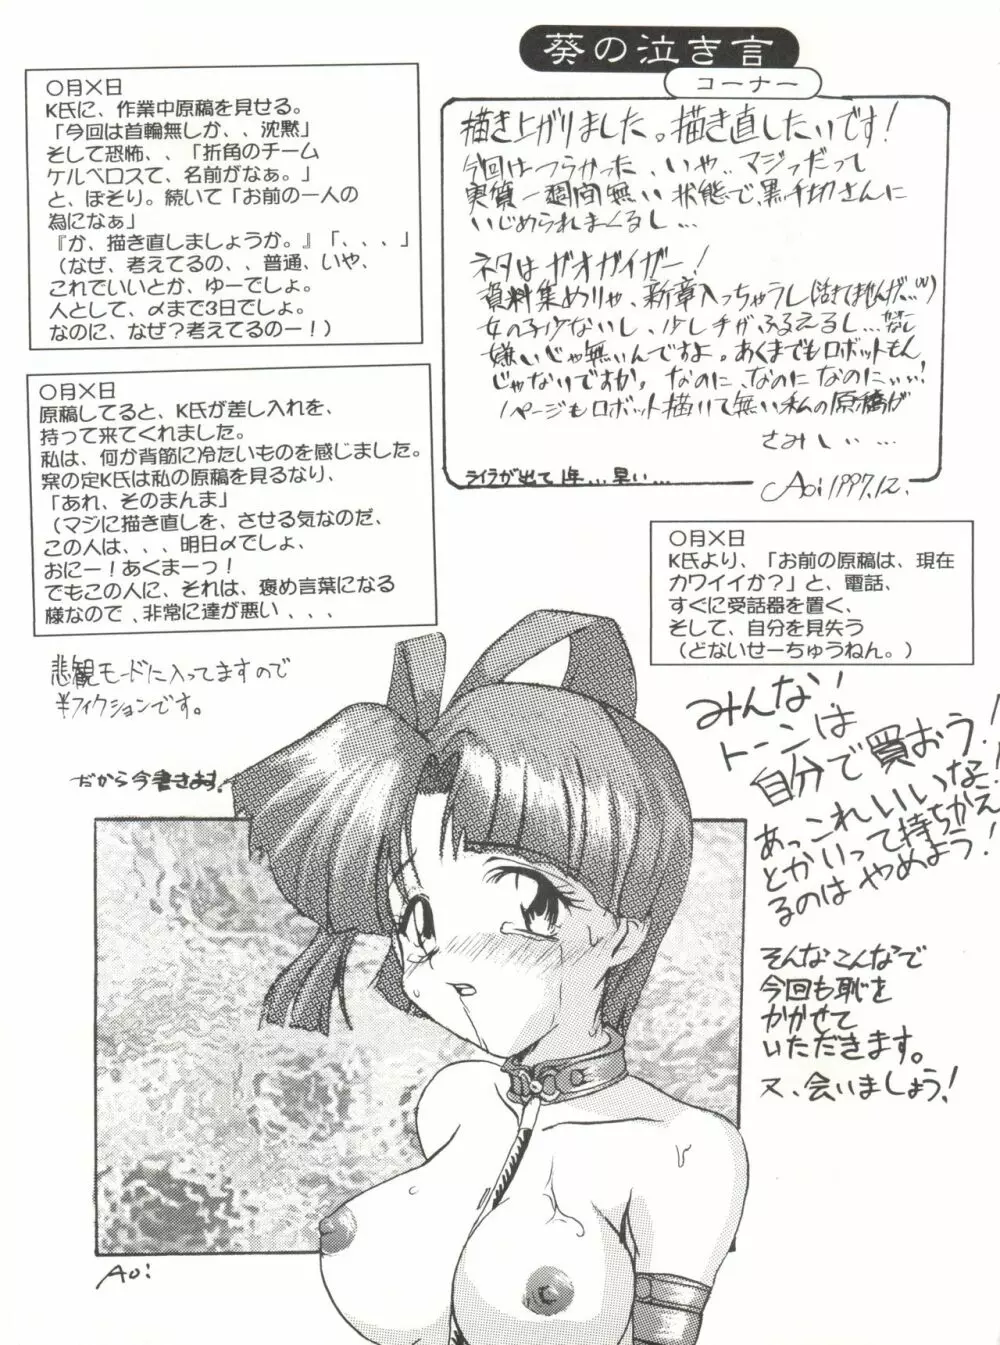 葵の泣き言
コーナー
○月×日
K氏に、作業中原稿を見せる。
「今回は首輪無しか、、沈黙」
そして恐怖、、「折角のチーム
ケルベロスて、名前がなぁ。」
と、ぼそり。続いて「お前の一人の
為になぁ」
『か、描き直しましょうか。』「、、、」
（なぜ、考えてるの、、普通、いや、
これでいいとか、ゆーでしょ。
人として、〆まで3日でしょ。
なのに、なぜ？考えてるのー！）
描き上がりました。描き直したいです！
今回はつらかった、いや、、マジっだって
実質一週間無い状態で、黒千切さんに
いじめられまくるし…
ネタはガオガイガー！
資料集めりゃ、新章入っちゃうし
女の子少ないし、少し手がふるえるし…
嫌いじゃ無いんですよ。あくまでもロボットもん
じゃないですか。なのに、なのに なのにぃぃ！
1ページもロボット描いて無い私の原稿が
さみしぃ…
ライラが出て1年…早い…
Aoi 1997.12.
○月×日
原稿してると、K氏が差し入れを、
持って来てくれました。
私は、何か背筋に冷たいものを感じました。
案の定K氏は私の原稿を見るなり、
「あれ、そのまんま」
（マジに描き直しを、させる気なのだ、
この人は、、、明日〆でしょ、
おにー！あくまーっ！
でもこの人に、それは、褒め言葉になる
様なので、非常に達が悪い、、、
○月×日
K氏より、「お前の原稿は、現在
カワイイか？」と、電話、
すぐに受話器を置く、
そして、自分を見失う
（どないせーちゅうねん。）
悲観モードに入ってますので
半フィクションです。
だから今書きます！
みんない
トーンは
自分で買おう！
あっこれいいな！
とかいって持ちかえ
るのはやめよう！
そんなこんなで
今回も恥を
かかせて
いただきます。
又、会いましょう！
Aoi